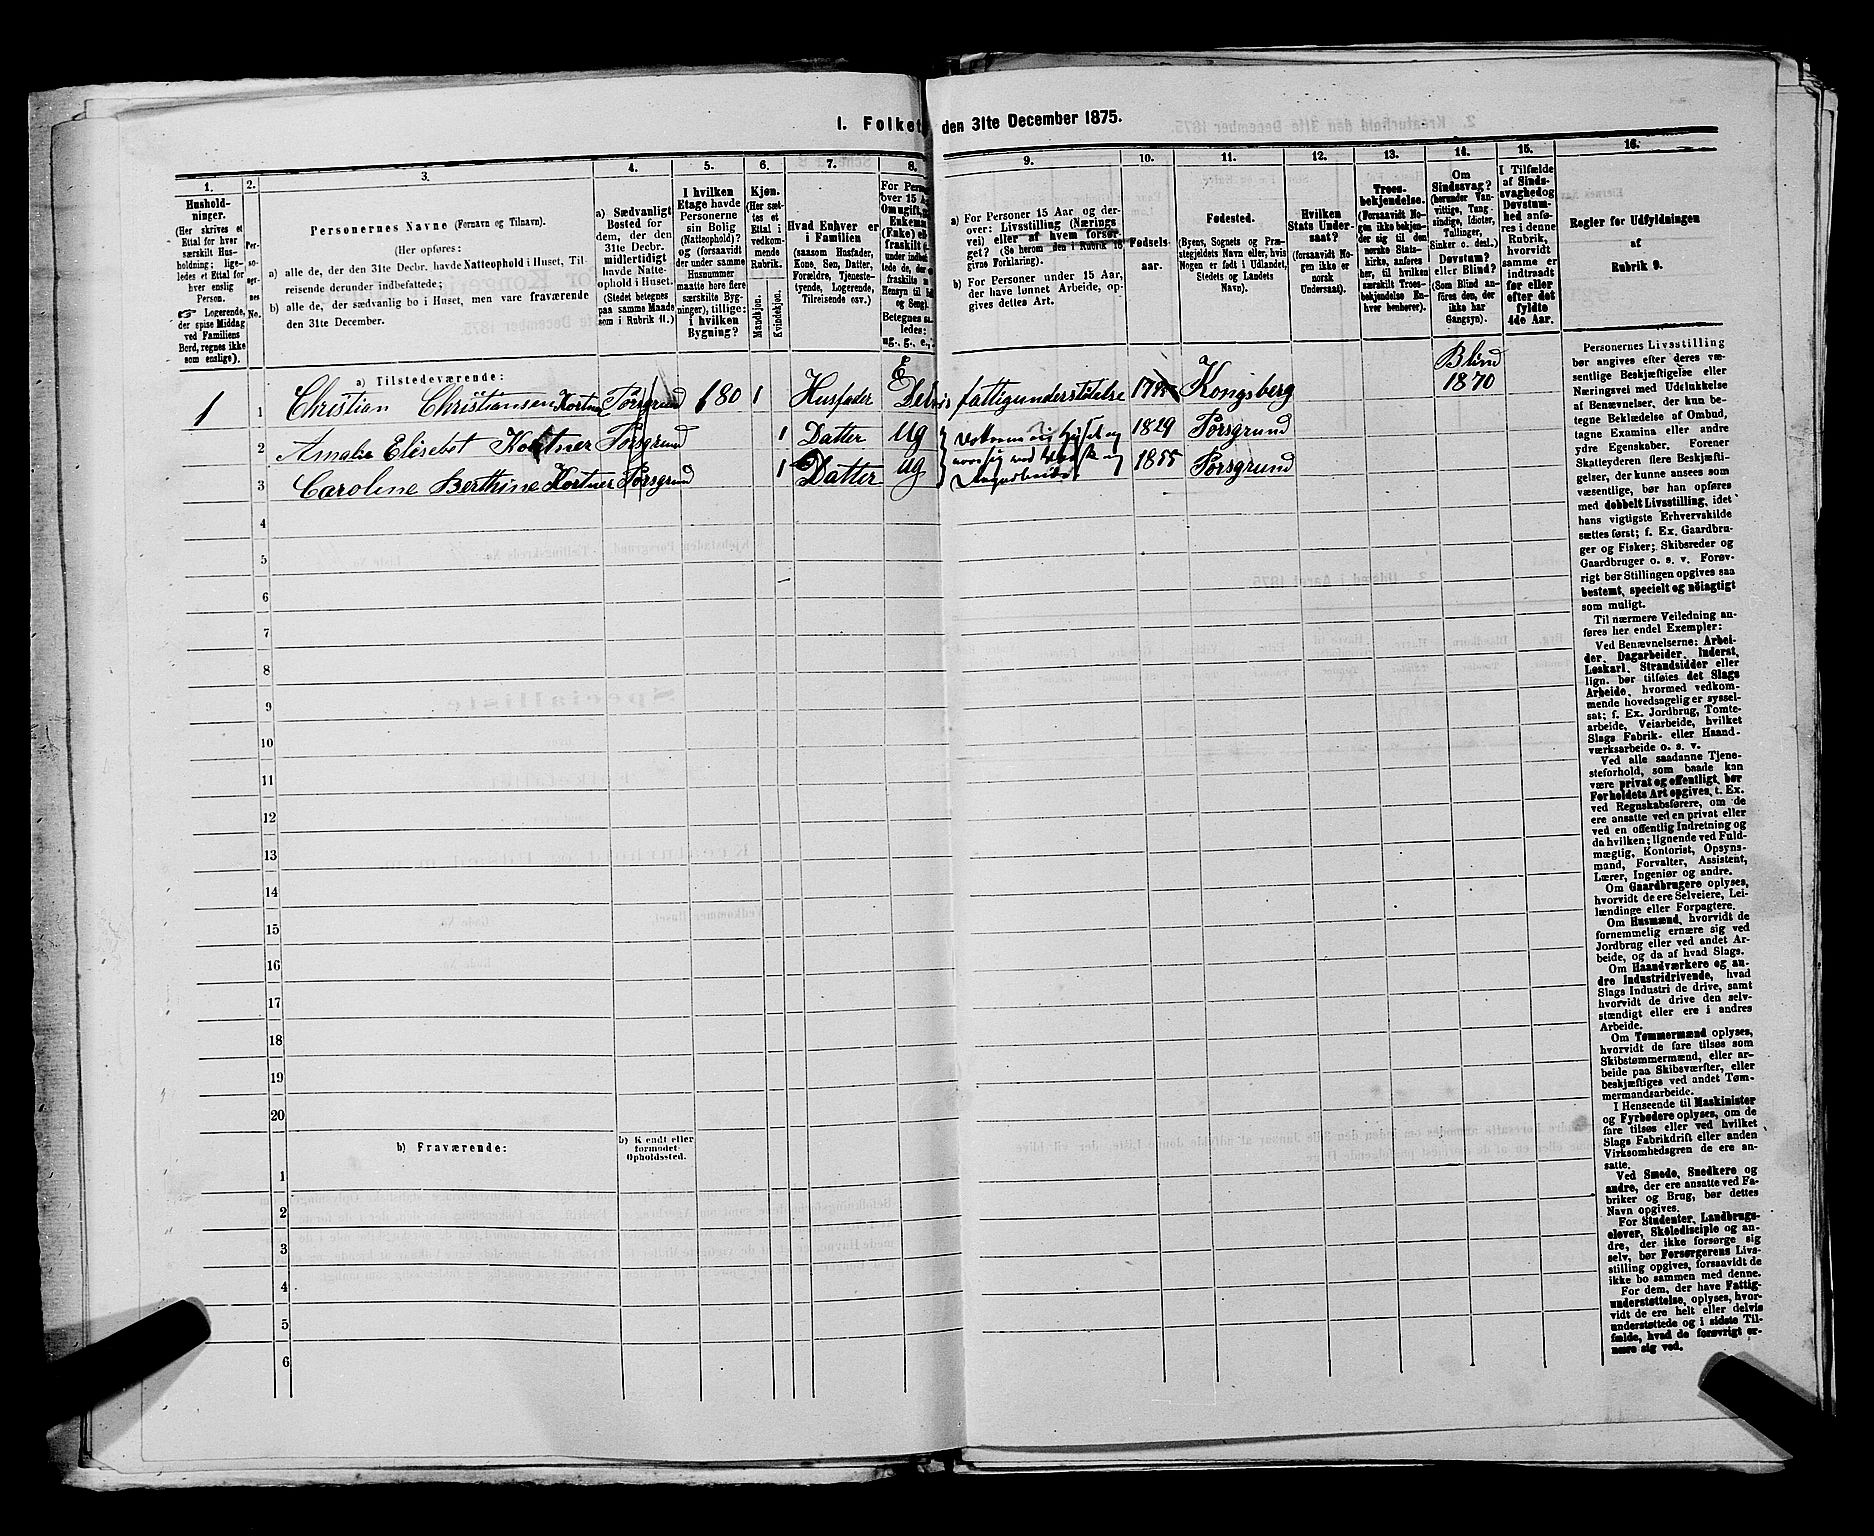 1. Folket den 31te December 1875.
1.
Husholdninger.
(Her skrives et Ettal for hver særskilt Husholdning; ligeledes et Ettal for hver enslig Person.
☞ Logerende, der spise Middag ved Familiens Bord, regnes ikke som enslige).
2.
Personernes No.
3.
Personernes Navne (Fornavn og Tilnavn).
(Her opføres:
a) alle de, der den 31te Decbr. havde Natteophold i Huset, Tilreisende derunder indbefattede;
b) alle de, der sædvanlig bo i Huset, men vare fraværende den 31te December.
4.
a) Sædvanligt Bosted for dem, der den 31te Decbr. midlertidigt havde Natteophold i Huset.
(Stedet betegnes paa samme Maade som i Rubrik 11.)
5.
I hvilken Etage havde Personerne sin Bolig (Natteophold)? og (forsaavidt der under samme Husnummer maatte høre flere særskilte Bygninger), tillige: i hvilken Bygning?
6.
Kjøn.
(Her sættes et Ettal i vedkommende Rubrik.
Mandkjøn.
Kvindekjøn.
7.
Hvad Enhver er i Familien
(saasom Husfader, Kone, Søn, Datter, Forældre, Tjenestetyende, Logerende, Tilreisende osv.)
8.
For Personer over 15 Aar
Om ugift, Enkemand (Enke) fraskilt
Betegnes saaledes:
ug., g., e.,
9.
a) For Personer 15 Aar og derover: Livsstilling (Næringsvei) eller af hvem forsørget? (Se herom den i Rubrik 16 givne Forklaring).
b) For Personer under 15 Aar, der have lønnet Arbeide, opgives dettes Art.
10.
Fødselsaar.
11.
Fødested.
(Byens, Sognets og Præstegjeldets Navn eller, hvis Nogen er født i Udlandet, Stedets og Landets Navn).
12.
Hvilken Stats Undersaat?
(forsaavidt Nogen ikke er norsk Undersaat).
13.
Troesbekjendelse.
(Forsaavidt Nogen ikke bekjender sig til den norske Statskirke, anføres her, til hvilken særskilt Troesbekjendelse Enhver henhører).
14.
Om Sindssvag?
(herunder Vanvittige, Tungsindige, Idioter, Tullinger, Sinker o. desl.)
Døvstum? eller Blind?
(Som Blind anføres den, der ikke har Gangsyn).
15.
I Tilfælde af Sindssvaghed og Døvstumhed anføres i denne Rubrik, hvorvidt samme er indtraadt før eller efter det fyldte 4de Aar.
16.
Regler for Udfyldningen
af
Rubrik 9.
a) Tilstedeværende:
1 1 Christian Christiansen Kortner Porsgrund 80 1 Husfader E Delvis fattigunderstøttelse Kongsberg Blind 1870
2 Amalie Elisebet Kortner Porsgrund 1 Datter Ug 1829 Porsgrund
3 Caroline Berthine Kortner Porsgrund 1 Datter Ug 1855 Porsgrund
4
5
6
7
8
9
10
11
12
13
14
15
16
17
18
19
20
b) Fraværende:
b) Kjendt eller formodet Opholdssted.
1
2
3
4
5
6
Personernes Livsstilling
bør angives efter deres væ-
sentlige Beskjæftigelse eller
Næringsvei med Udelukkelse
af Benævnelser, der kun be-
tegne Beklædelse af Ombud,
tagne Examina eller andre
ydre Egenskaber. Forener
Skatteyderen flere Beskjæfti-
gelser, der kunne ansees som
væsentlige, bør han opføres
med dobbelt Livsstilling, idet
hans vigtigste Erhvervskilde
sættes først; f. Ex. Gaardbru-
ger og Fisker; Skibsreder og
Gaardbruger o. s. v. Forøv-
rigt bør Stillingen opgives saa
bestemt, specielt og nöiagtigt
som muligt.
Til nærmere Veiledning an-
føres her endel Exempler:
Ved Benævnelserne: Arbei-
der, Dagarbeider, Inderst,
Løskarl, Strandsidder eller
lign. bør tilføies det Slags
Arbeide, hvormed vedkom-
mende hovedsagelig er syssel-
sat; f. Ex. Jordbrug, Tomte-
arbeide, Veiarbeide, hvilket
Slags Fabrik- eller Haand-
værksarbeide o. s. v.
Ved alle saadanne Tjene-
steforhold, som baade kan
være privat og offentligt, bør
Forholdets Art opgives, t. Ex.
ved Regnskabsførere, om de
ere ansatte ved en privat eller
ved en offentlig Indretning og
da hvilken; lignende ved Fuld-
mægtig, Kontorist, Opsyns-
mand, Forvalter, Assistent,
Lærer, Ingeniør og andre.
Om Gaardbrugere oplyses,
hvorvidt de ere Selveiere, Lei-
lændinge eller Forpagtere.
Om Husmænd, hvorvidt de
fornemmelig ernære sig ved
Jordbrug eller ved andet Ar-
beide, og da af hvad Slags.
Om Haandværkere og an-
dre Industridrivende, hvad
Slags Industri de drive, samt
hvorvidt de drive den selv-
stændigt eller ere i andres
Arbeide.
Om Tømmermænd oplyses,
hvorvidt de fare tilsøs som
Skibstømmermænd, eller ar-
beide paa Skibsværfter, eller
beskjæftiges ved andet Tøm-
mermandsarbeide.
I Henseende til Maskinister
og Fyrbødere oplyses, om de
fare tilsøs eller ved hvilket
Slags Fabrikdrift eller anden
Virksomhedsgren de ere an-
satte.
Ved Smede, Snedkere og
andre, der ere ansatte ved Fa-
briker og Brug, bør dettes
Navn opgives.
For Studenter, Landbrugs-
elever, Skoledisciple og an-
dre, der ikke forsørge sig
selv, bør Forsørgerens Livs-
stilling opgives, forsaavidt de
ikke bo sammen med denne.
For dem, der have Fattig-
understøttelse, oplyses, hvor-
vidt de ere helt eller delvis
understøttede og i sidste Til-
fælde, hvad de forøvrigt er-
nære sig ved.